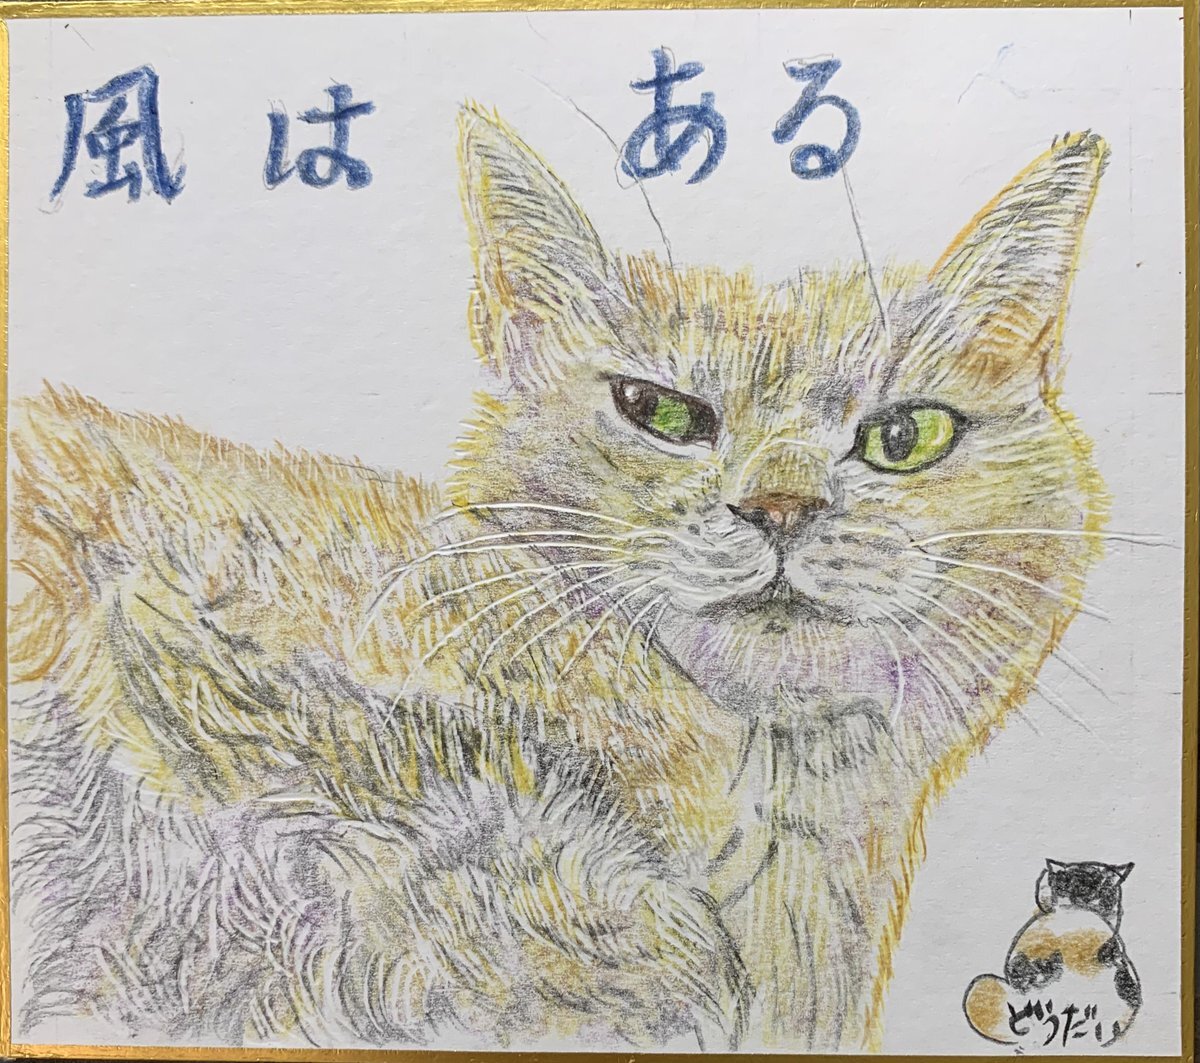 風は ある
どうだい